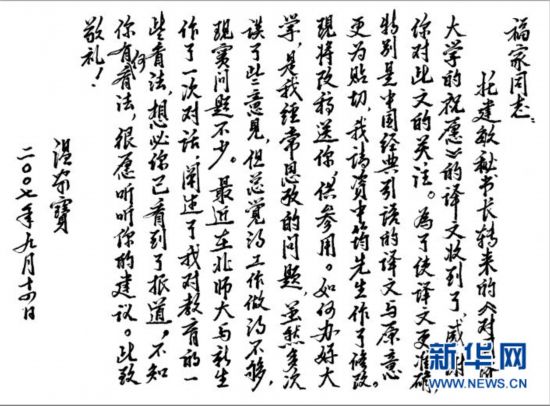 福家同志：
托建敏秘书长转来的《对一所
大学的祝愿》的译文收到了，感谢
你对此文的关注。为了使译文更准确，
特别是中国经典引语的译文与原意
更为贴切，我请资中筠先生作了修改。
现将改稿送你，供参用。如何办好大
学，是我经常思考的问题，虽然多次
谈了些意见，但总觉得工作做得不够，
现实问题不少。最近在北师大与新生
作了一次对话，阐述了我对教育的一
些看法，想必你已看到了报道。不知
你有何看法，很愿听听你的建议。此致
敬礼！
温家宝
二〇〇七年九月十四日
新华网
WWW.NEWS.CN